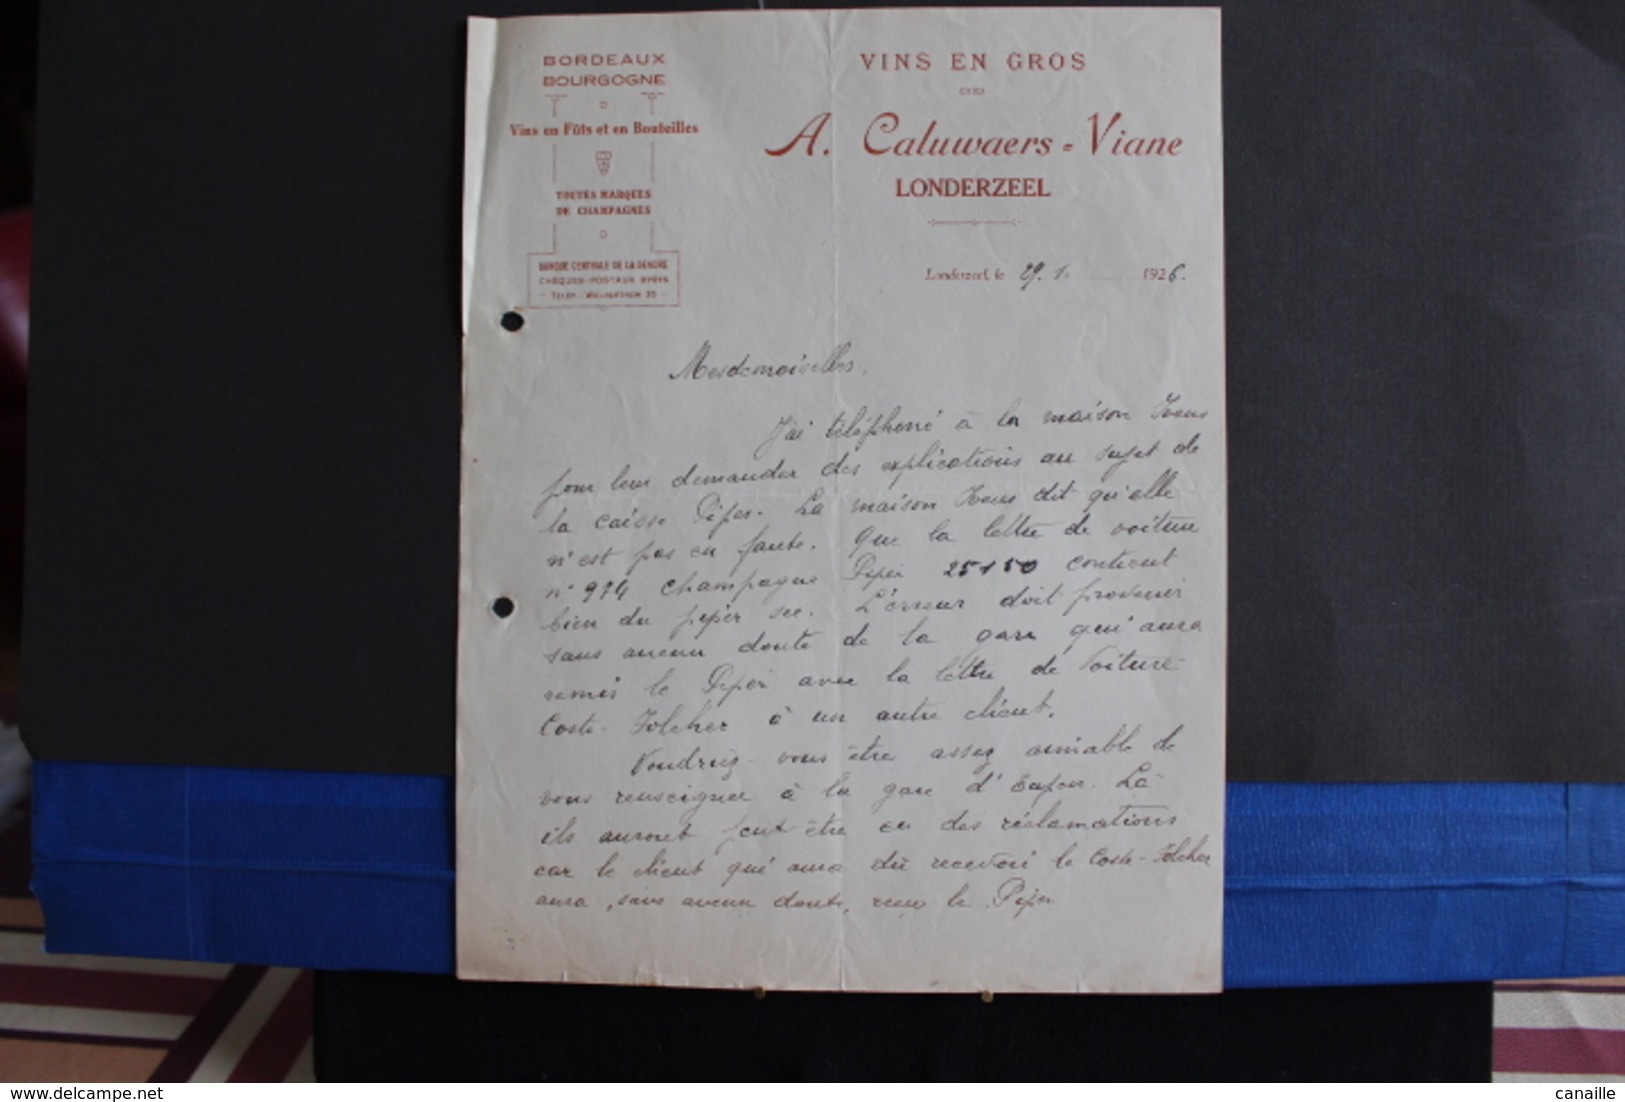 BORDEAUX
BOURGOGNE
Vins en Fûts et en Bouteilles
TOUTES MARQUES
DE CHAMPAGNES
BANQUE CENTRALE DE LA DENDRE
CHÈQUES-POSTAUX
TÉLÉP. : WOLVERTHEM 35
VINS EN GROS
A. Caluwaers = Viane
LONDERZEEL
Londerzeel, le 29. 1. 1926.
Mesdemoiselles,
J'ai téléphoné à la maison
pour leur demander des explications au sujet de
la caisse Piper. La maison dit qu'elle
n'est pas en faute. Que la lettre de voiture
n° 974 champagne Piper 25150 contient
bien du pipèr sec. L'erreur doit provenir
sans aucun doute de la gare qui aura
remis le Piper avec la lettre de voiture
Coste-Folcher à un autre client.
Voudriez-vous être assez aimable de
vous renseigner à la gare d'Eupen. Là
ils auront peut être eu des réclamations
car le client qui aura dû recevoir le Coste-Folcher
aura, sans aucun doute, reçu le Piper
delcampe.net
canaille